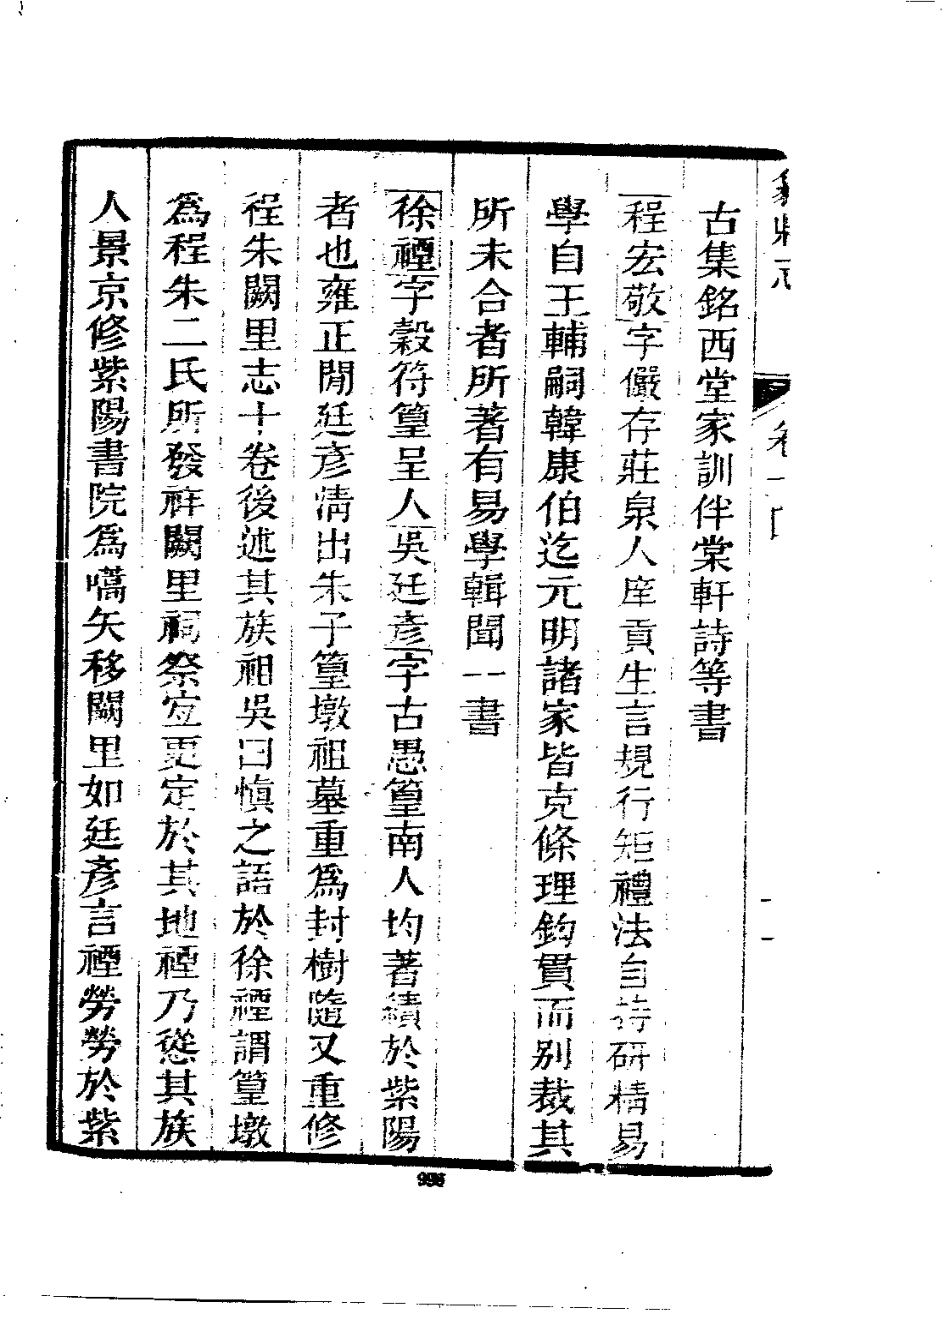 古集銘西堂家訓伴棠軒詩等書
程宏敬字儼存莊泉人庠貢生言規行矩禮法自持研精易
學自王輔嗣韓康伯迄元明諸家皆克條理鈎貫而别裁其
所未合者所著有易學輯聞一書
徐禋字穀符篁呈人吳廷彥字古愚篁南人均著績於紫陽
者也雍正閒廷彥清出朱子篁墩祖墓重爲封樹隨又重修
程朱闕里志十卷後述其族祖吳曰愼之語於徐禋謂篁墩
爲程朱二氏所發祥闕里祠祭宜更定於其地禋乃慫其族
人景京修紫陽書院爲嚆矢移闕里如廷彥言禋勞勞於紫
996